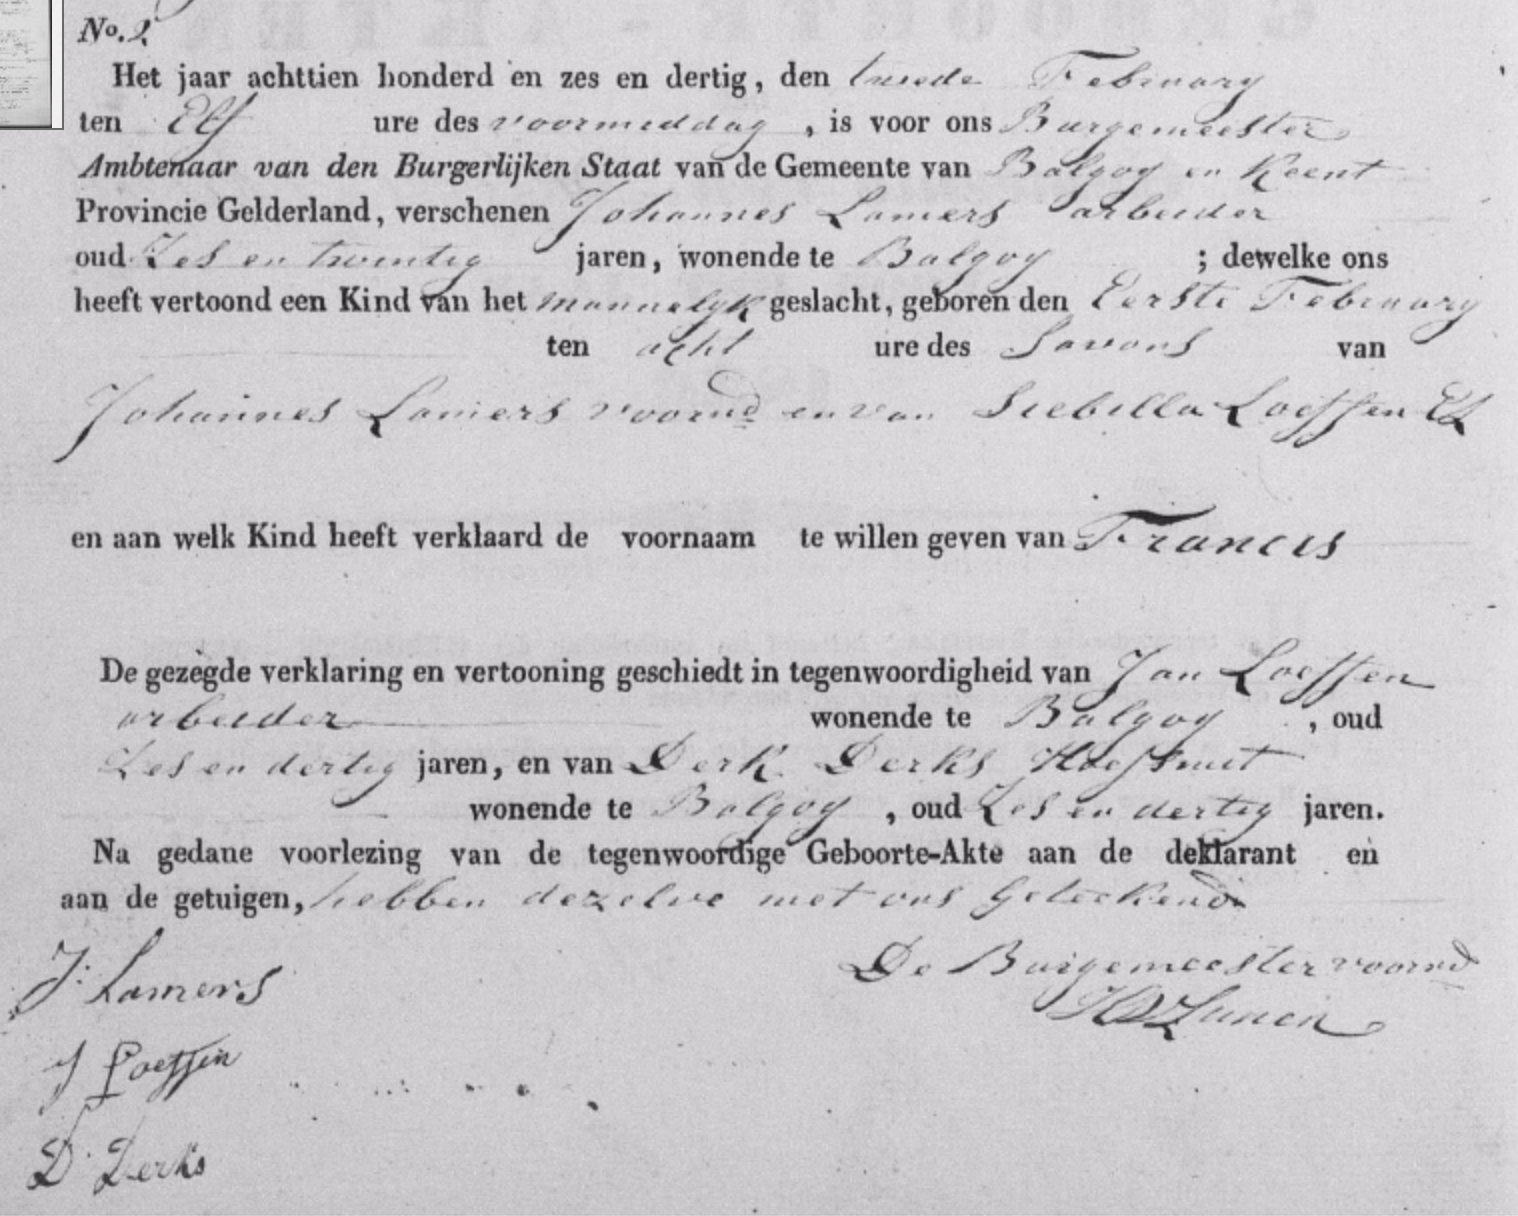 No. 2
Het jaar achttien honderd en zes en dertig, den tweede February
ten Elf ure des voormiddag, is voor ons Burgemeester
Ambtenaar van den Burgerlijken Staat van de Gemeente van Balgoy en Keent
Provincie Gelderland, verschenen Johannes Lamers arbeider
oud Zes en twentig jaren, wonende te Balgoy ; dewelke ons
heeft vertoond een Kind van het mannelyk geslacht, geboren den Eerste February
ten acht ure des Savons van
Johannes Lamers voornd en van Siebilla Loeffen El
en aan welk Kind heeft verklaard de voornaam te willen geven van Francis
De gezegde verklaring en vertooning geschiedt in tegenwoordigheid van Jan Loeffen
arbeider wonende te Balgoy, oud
Zes en dertig jaren, en van Derk Derks Hoefsmit
wonende te Balgoy, oud Zes en dertig jaren.
Na gedane voorlezing van de tegenwoordige Geboorte-Akte aan de deklarant en
aan de getuigen, hebben dezelve met ons Geteekend
De Burgemeester voornd
J. Lamers
J Loeffen
D. Derks